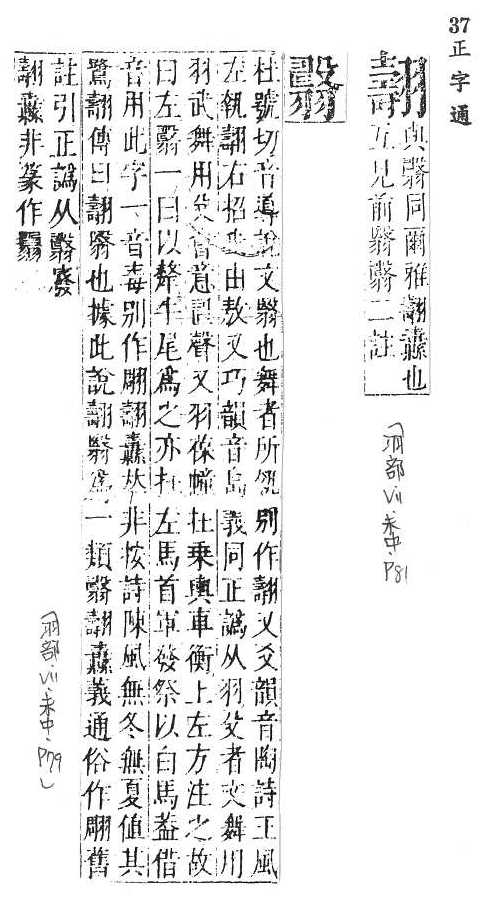 37 正字通
翿
與翳同爾雅翿纛也
互見前翳翳二註
(羽部 VII.未中.P81
翳
杜號切音導說文翳也舞者所執別作翿又爻韻音陶詩王風
左執翿右招我由敖又巧韻音島義同正譌从羽殳者文舞用
羽武舞用殳會意聲又羽葆幢在乘輿車衡上左方注之故
曰左翳一曰以犛牛尾爲之亦在左馬首軍發祭以白馬葢借
音用此字一音毒別作翢翿纛𠀤非按詩陳風無冬無夏值其
鷺翿傳曰翿翳也據此說翿翳爲一類翳翿纛義通俗作翢舊
註引正譌从翳廢
翿纛非篆作
(羽部.VII.未中.P79)